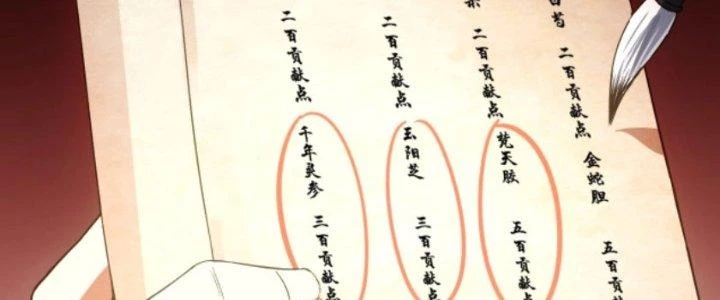 二百贡献点
金蛇胆
五百贡献
二百贡献点
梵天胶
五百贡献点
二百贡献点
玉阳芝
三百贡献点
二百贡献点
千年灵参
三百贡献点